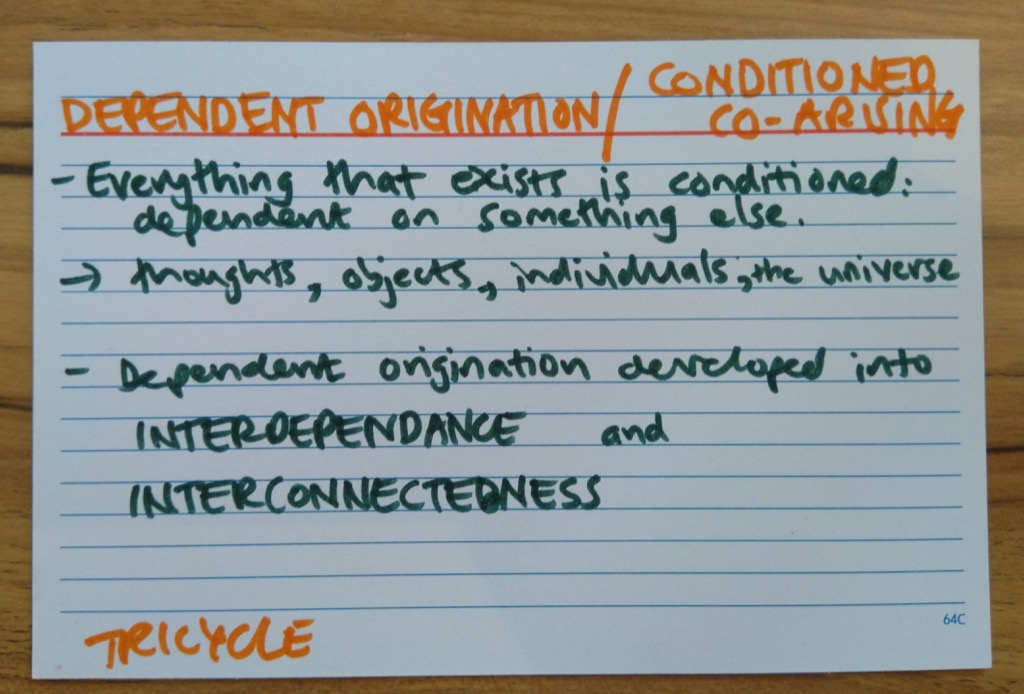 DEPENDENT ORIGINATION / CONDITIONED
CO-ARISING
- Everything that exists is conditioned:
dependent on something else.
→ thoughts, objects, individuals, the universe
- Dependent origination developed into
INTERDEPENDANCE and
INTERCONNECTEDNESS
64C
TRICYCLE